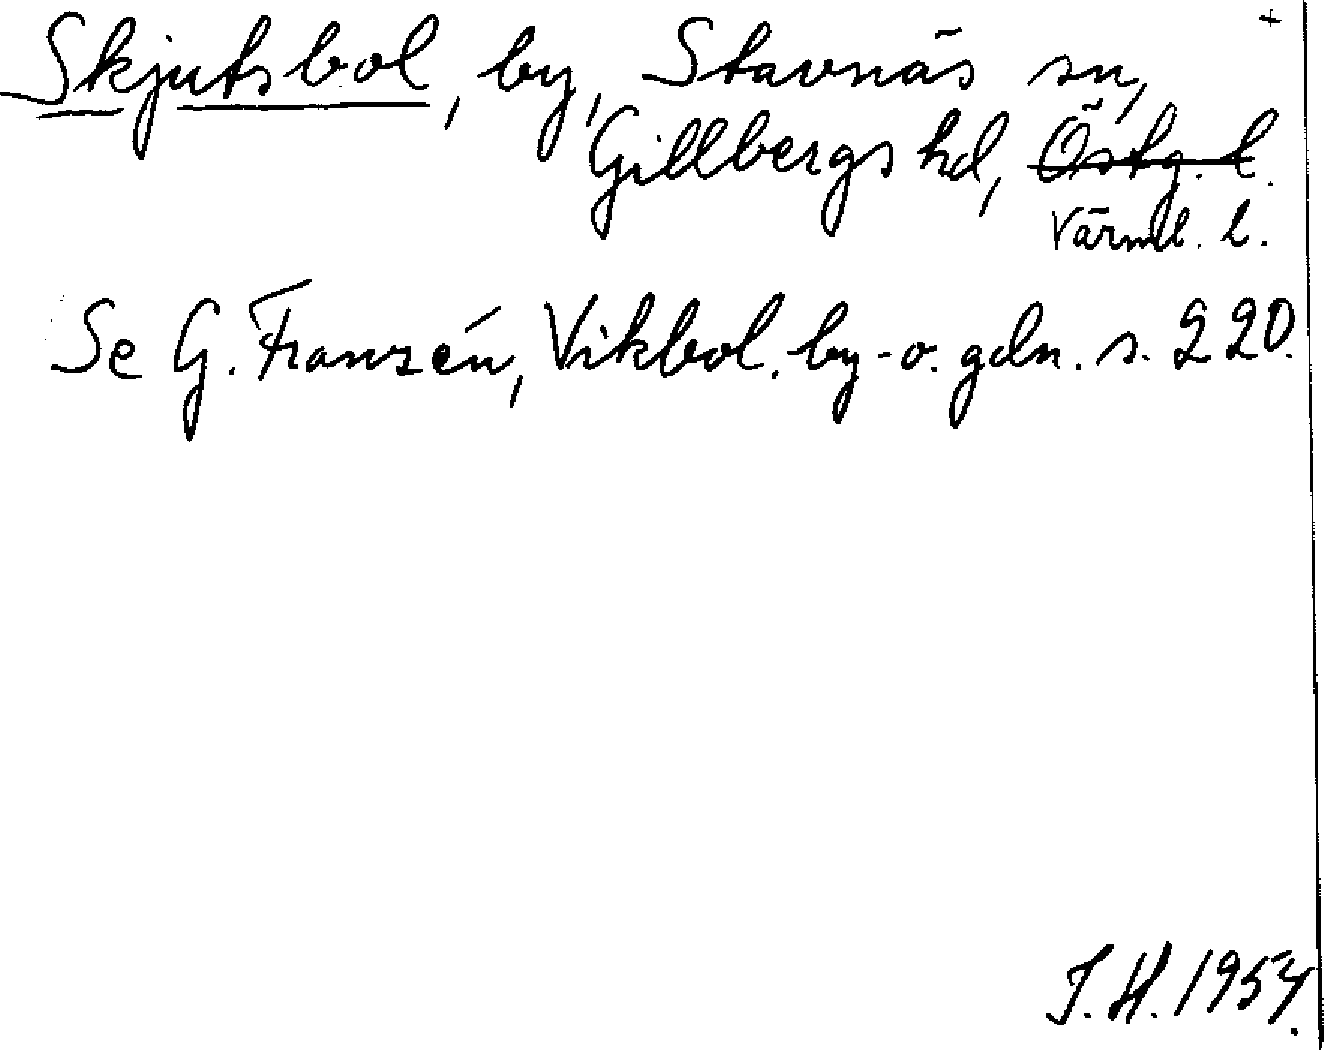 +
Skjutsbol, by, Stavnäs sn,
Gillbergs hd, Östg. l.
Värml. l.
Se G. Franzén, Vikbol. by- o. gdn. s. 220.
J. H. 1954.